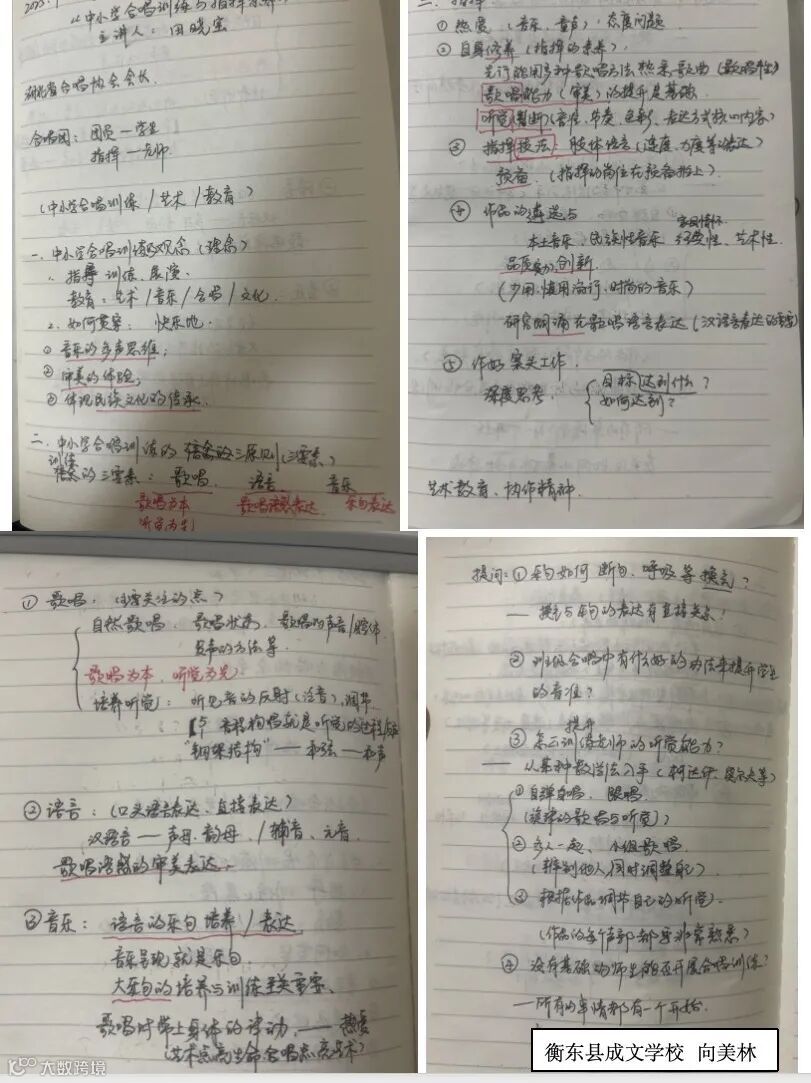 《中小学合唱训练与指挥
主讲人：田晓宝
湖北省合唱协会会长
合唱团：团员—学生
指挥—老师
（中小学合唱训练/艺术/教育）
一、中小学合唱训练观念（理念）
1、指导训练、展演
教育：艺术/音乐/合唱/文化
2、如何贯穿：快乐地
①音乐的多声思维；
②审美的体验；
③体现民族文化的传承
二、中小学合唱训练的三原则（三要素）
训练
的三要素：歌唱 语言 音乐
歌唱为本 歌唱语感表达 乐句表达
听觉为先
二、指挥
①热度（音乐、童声）：态度问题
②自身修养（指挥的素养）
先行能用多种歌唱方法热爱歌曲（歌唱性）
歌唱能力（审美）的提升是基础
听觉（判断）（音准、节奏、色彩、表达方式核心内容）
③指挥技法：肢体语言（速度、力度等的表达）
预备（指挥的岗位在预备拍上）
④作品的遴选与
家国情怀
本土音乐、民族性音乐 经典性、艺术性
品质 创新
（少用、慎用流行、时尚的音乐）
研究 歌唱语言表达（汉语言表达的
⑤作好案头工作
深度思考 目标达到什么？
如何达到？
艺术教育、协作精神
①歌唱：（需关注的点）
自然歌唱、歌唱状态、歌唱的声音/腔体
发声的方法等
歌唱为本，听觉为先
培养听觉：听见音的反射（注音）、调节
音程构唱就是听觉的过程
"钢架结构"——和弦——和声
②语言：（口头语言表达、直接表达）
汉语言——声母、韵母/辅音、元音
歌唱语感的审美表达
③音乐：语言的乐句培养/表达
音乐呈现就是乐句
大乐句的培养与训练至关重要
歌唱时带上身体的律动——热爱
（艺术 生命 合唱点亮艺术）
提问：①乐句如何断句、呼吸等换气？
——换气与乐句的表达有直接关系！
②班级合唱中有什么好的办法来提升学生
的音准？
提升
③怎么训练老师的听觉能力？
——从某种教学法入手（柯达伊、奥尔夫等）
①自弹自唱、跟唱
（旋律的歌唱与听觉）
②多人一起、小组歌唱
（辨别他人同时调整自己）
③根据作品调节自己的听觉
（作品的每个声部都要非常熟悉）
④没有基础的师生能否开展合唱训练？
——所有的事情都有一个开始
衡东县成文学校 向美林
大数跨境